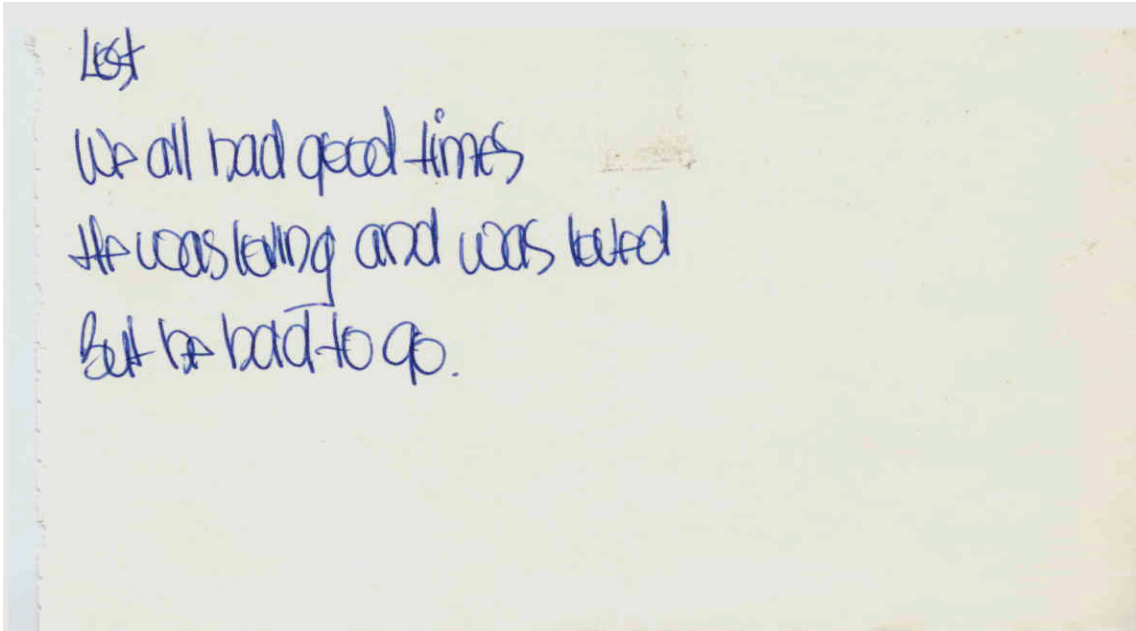 Lost
We all had good times
He was loving and was loved
But he had to go.